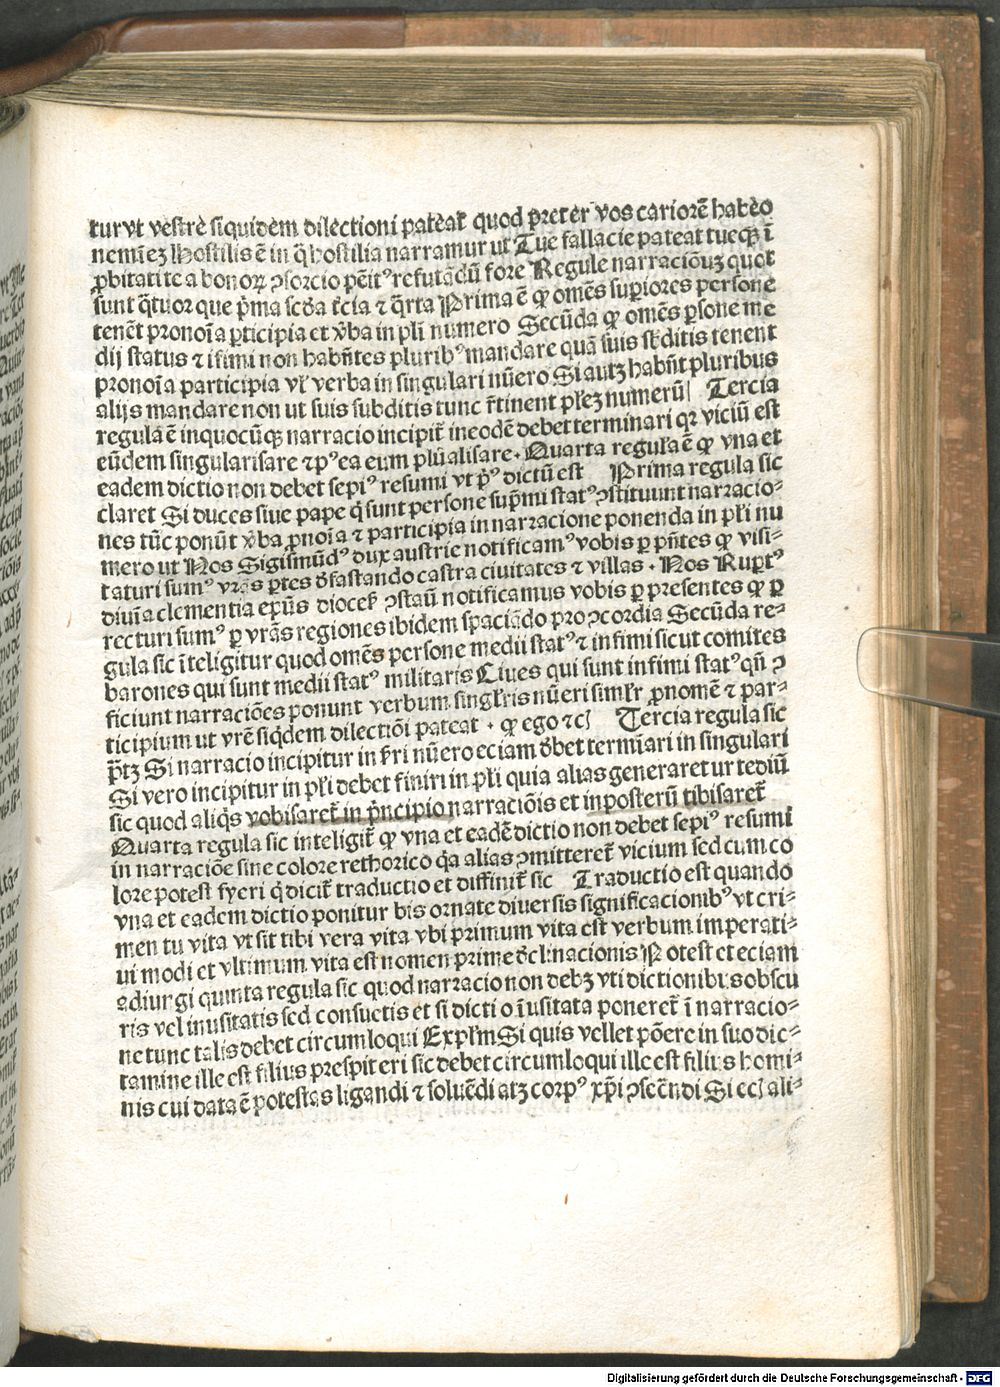 tur vt vestre siquidem dilectioni pateat̄ quod preter vos cariorē habeo
nemīeꝫ Hostilis ē in q̄ hostilia narramur ut Tue fallacie pateat tueqꝫ ī
ꝓbitati te a bonoꝝ ꝯsorcio pēitꝰ refutādū fore Regule narraciōuꝫ quot
sunt q̄tuor que p̄ma scd̄a t̄cia ⁊ q̄rta Prima ē ꝙ omēs suꝑiores persone
tenēt pronoīa ꝑticipia et v̄ba in pl̄i numero Secūda ꝙ omēs ꝑsone me
dij status ⁊ ifimi non habn̄tes pluribꝰ mandare quā suis sb̄ditis tenent
pronoīa participia vl̓ verba in singulari nūero Si autꝫ habn̄t pluribus
alijs mandare non ut suis subditis tunc r̄tinent pl̄eꝫ numerū Tercia
regula ē in quocūqꝫ narracio incipit̄ in eodē debet terminari qꝛ viciū est
eūdem singularisare ⁊ pꝰ ea eum plūalisare. Quarta regula ē ꝙ vna et
eadem dictio non debet sepiꝰ resumi vt pꝰ dictū est Prima regula sic
claret Si duces siue pape q̄ sunt persone sup̄mi statꝰ ꝯstituunt narracio-
nes tūc ponūt v̄ba ꝓnoīa ⁊ participia in narracione ponenda in pl̄i nu
mero ut Nos Sigismūdꝰ dux austrie notificamꝰ vobis ꝑ pn̄tes ꝙ visi-
taturi sumꝰ vr̄as ꝑtes d̄fastando castra ciuitates ⁊ villas. Nos Ruꝑtꝰ
diuīa clementia ep̄us dioces̄ ꝯstaū notificamus vobis ꝑ presentes ꝙ ꝑ
recturi sumꝰ ꝑ vr̄as regiones ibidem spaciādo pro ꝯcordia Secūda re-
gula sic īteligitur quod omēs persone medii statꝰ ⁊ infimi sicut comites
barones qui sunt medii statꝰ militaris Ciues qui sunt infimi statꝰ qn̄ ꝯ
ficiunt narraciōes ponunt verbum singl̄ris nūeri simlr̄ ꝓnomē ⁊ par-
ticipium ut vr̄e siq̄dem dilectiōi pateat. ꝙ ego ⁊c Tercia regula sic
p̄tꝫ Si narracio incipitur in sr̄i nūero eciam d̄bet termīari in singulari
Si vero incipitur in pl̄i debet finiri in pl̄i quia alias generaretur tediū
sic quod aliq̄s vobisaret̄ in p̄ncipio narraciōis et in posterū tibisaret̄
Quarta regula sic inteligit̄ ꝙ vna et eadē dictio non debet sepiꝰ resumi
in narraciōe sine colore rethorico q̄a alias ꝯmitteret̄ vicium sed cum co
lore potest fyeri q̄ dicit̄ traductio et diffinit̄ sic Traductio est quando
vna et eadem dictio ponitur bis ornate diuersis significacionibꝰ vt cri-
men tu vita vt sit tibi vera vita vbi primum vita est verbum imperati-
ui modi et vltimum vita est nomen prime d̄clinacionis Potest et eciam
adiungi quinta regula sic quod narracio non debꝫ vti dictionibus obscu
ris vel inusitatis sed consuetis et si dictio īusitata poneret̄ ī narracio-
ne tunc talis debet circumloqui Expl̄m Si quis vellet pōere in suo dic-
tamine ille est filius prespiteri sic debet circumloqui ille est filius homi-
nis cui data ē potestas ligandi ⁊ soluēdi atꝫ corpꝰ xp̄i ꝯsecrādi Si ec̄ ali-
Digitalisierung gefördert durch die Deutsche Forschungsgemeinschaft - DFG